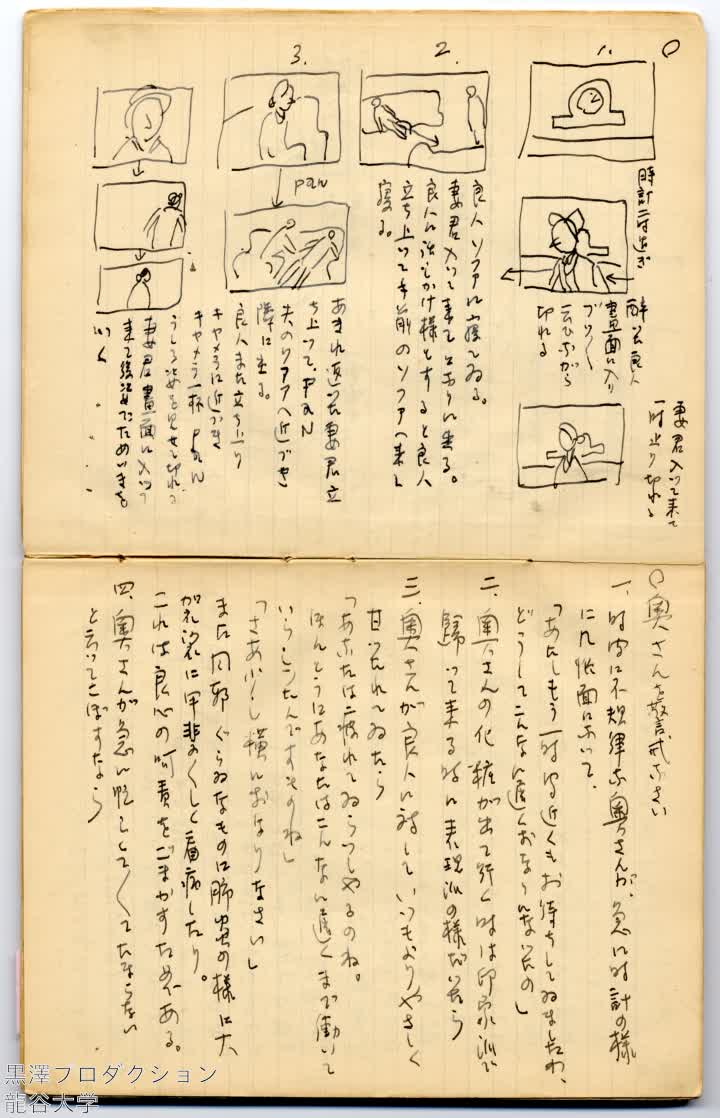 1.
時計二時過ぎ
酔った良人
画面に入り
ブツブツ
云ひながら
切れる
妻君入って来て
一時止り切れる
2.
良人ソファに寝てゐる。
妻君入って来てとなりに坐る。
良人に話しかけ様とすると良人
立ち上って手前のソファへ来て
寝る。
3.
pan
あきれ返った妻君立
ち上って、PAN
夫のソファへ近づき
隣に坐る。
良人また立ち上り
キャメラに近づき
キャメラ一杯 PAN
うしろ姿を見せて切れる
妻君画面に入って
来て後ろ姿でためいきを
つく
奥さんを警戒なさい
一、時間に不規律な奥さんが、急に時計の様
に几帳面になって、
「あたしもう一時間近くもお待ちしてゐましたわ、
どうしてこんなに遅くおなんなったの」
二、奥さんの化粧が出て行く時は印象派で
帰って来る時に表現派の様だったら
三、奥さんが良人に対していつもよりやさしく
甘ったれてゐたら
「あなたは疲れてゐらっしやるのね。
ほんとうにあなたはこんなに遅くまで働いて
いらしたんですものね」
「さあ少し横におなりなさい」
また風邪ぐらゐなものに肺炎の様に大
がゝりに甲斐々々しく看病したり。
これは良心の呵責をごまかすためである。
四、奥さんが急に忙しくてたまらない
と云ってこぼすなら
黒澤プロダクション
龍谷大学